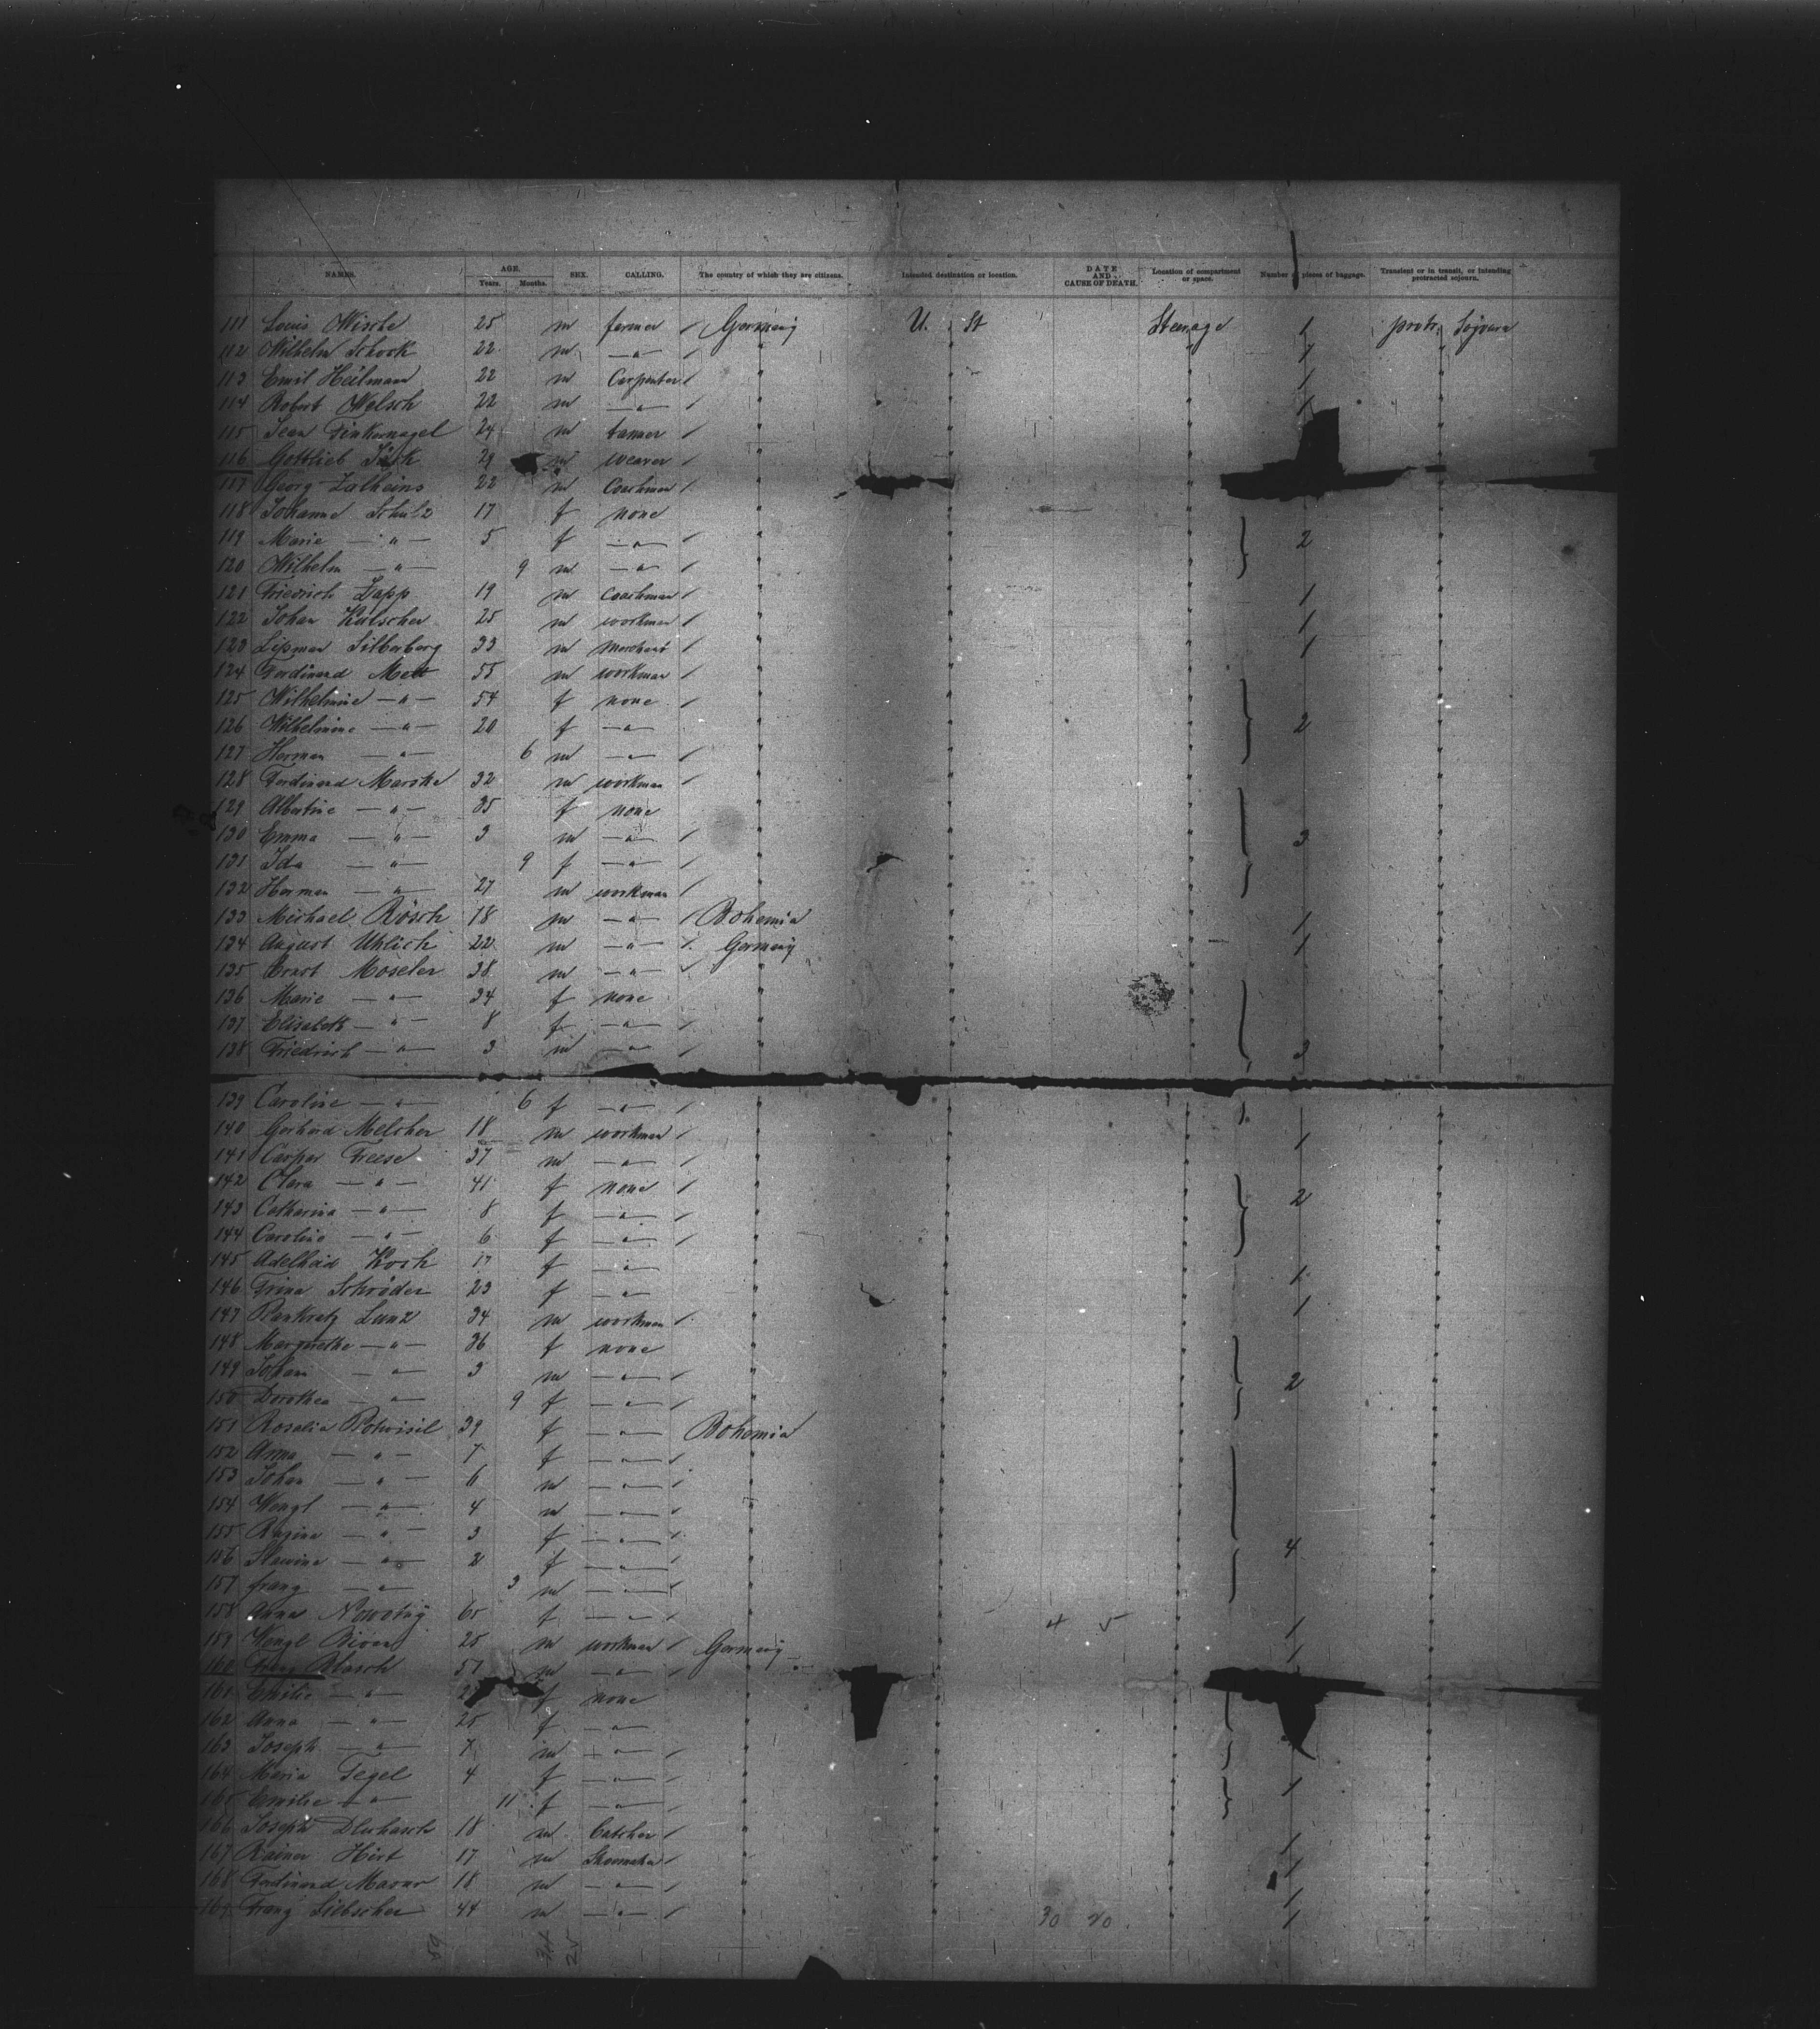 NAMES. AGE. Years. Months. SEX. CALLING. The country of which they are citizens. Intended destination or location. DATE AND CAUSE OF DEATH. Location of compartment or space. Number of pieces of baggage. Transient or in transit, or intending protracted sojourn.
111 Louis Wische 25 m farmer / Germany U. St Steerage 1 protr. Sojourn
112 Wilhelm Schock 22 m —"— / " " " 1 "
113 Emil Heilmann 22 m Carpenter / " " " 1 "
114 Robert Welsch 22 m —"— / " " " 1 "
115 Jean Finkernagel 24 m tanner / " " " "
116 Gottlieb 29 m weaver / " " "
117 Georg Zalheins 22 m Coachman / " " "
118 Johanne Schulz 17 f none " " " "
119 Marie —"— 5 f —"— / " " " 2 "
120 Wilhelm —"— 9 m —"— / " " " "
121 Friedrich Zapp 19 m Coachman / " " " 1 "
122 Johan Kutscher 25 m workman / " " " 1 "
123 Lipman Silberberg 33 m Merchant / " " " 1 "
124 Ferdinand Mett 55 m workman / " " " "
125 Wilhelmine —"— 54 f none / " " " "
126 Wilhelmine —"— 20 f —"— " " " 2 "
127 Herman —"— 6 m —"— / " " " "
128 Ferdinand Marske 32 m workman / " " " "
129 Albertine —"— 35 f none " " " "
130 Emma —"— 3 m —"— / " " " 3 "
131 Ida —"— 9 f —"— / " " " "
132 Herman —"— 27 m workman / " " " "
133 Michael Rösch 18 m —"— / Bohemia " " 1 "
134 August Uhlich 22 m —"— / Germany " " 1 "
135 Ernst Moseler 38 m —"— / " " " "
136 Marie —"— 34 f none " " " "
137 Elisabeth —"— 8 f —"— / " " " "
138 Friedrich —"— 3 m —"— / " " " 3 "
139 Caroline —"— 6 f —"— / " " " "
140 Gerhard Melcher 18 m workman / " " " 1 "
141 Caspar Freese 37 m —"— / " " " "
142 Clara —"— 41 f none / " " " 2 "
143 Catharina —"— 8 f —"— / " " " "
144 Caroline —"— 6 f —"— / " " " "
145 Adelheid Koch 17 f —"— " " " 1 "
146 Trina Schröder 23 f —"— " " " 1 "
147 Pankratz Lunz 34 m workman / " " " "
148 Margarethe —"— 36 f none " " " "
149 Johann —"— 3 m —"— / " " " 2 "
150 Dorothea —"— 9 f —"— / " " " "
151 Rosalia 39 f —"— Bohemia " " "
152 Anna —"— 7 f —"— / " " " "
153 Johan —"— 6 m —"— / " " " "
154 Wenzl —"— 4 m —"— / " " " "
155 Regina —"— 3 f —"— / " " " "
156 —"— 2 f —"— / " " " 4 "
157 franz —"— 3 m —"— / " " " "
158 Anna Nowotny 65 f —"— / " " 4 5 " 1 "
159 Wenzl 25 m workman / Germany " " 1 "
160 Franz Blasch 57 m —"— / " " " "
161 Emilie —"— f none " " " "
162 Anna —"— 25 f —"— " " " "
163 Joseph —"— 7 m —"— / " " " "
164 Maria Tegel 4 f —"— / " " " 1 "
165 Emilie —"— 11 f —"— / " " " "
166 Joseph Dluhasch 18 m Butcher / " " " 1 "
167 Rainer Hirt 17 m Shoemaker / " " " 1 "
168 Ferdinand 18 m —"— / " " " 1 "
169 Franz Liebscher 44 m —"— / " " 30 20 " 1 "
59 34 25